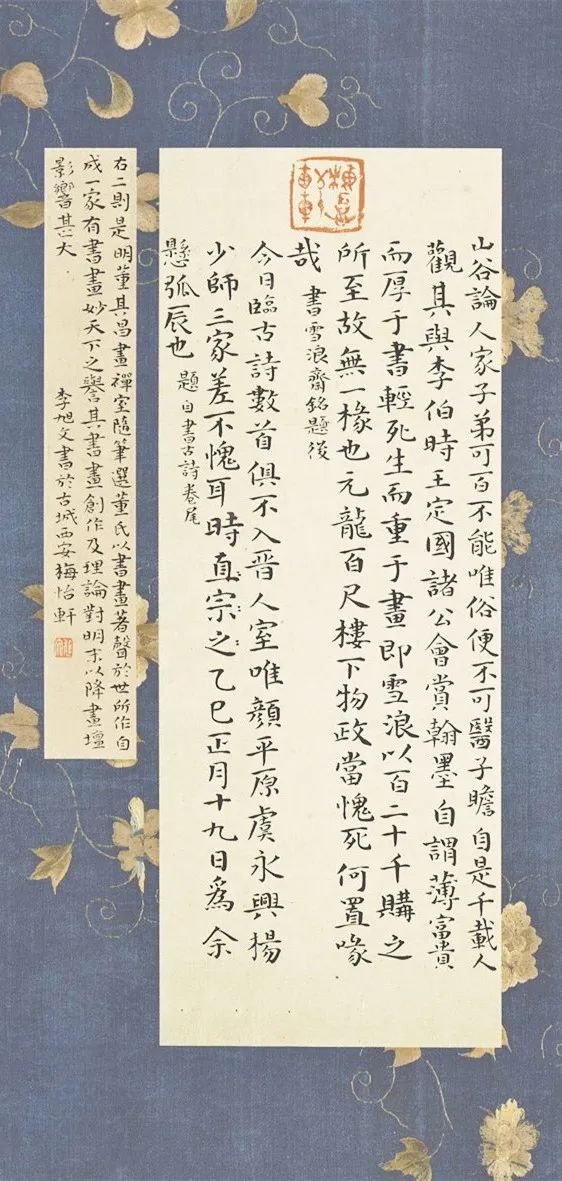 山谷論人家子弟可百不能唯俗便不可醫子瞻自是千載人
觀其與李伯時王定國諸公會賞翰墨自謂薄富貴
而厚于書輕死生而重于畫即雪浪以百二十千購之
所至故無一椽也元龍百尺樓下物政當愧死何置喙
哉 書雪浪齋銘題後
今日臨古詩數首俱不入晋人室唯顏平原虞永興楊
少師三家差不愧耳時直宗之乙巳正月十九日爲余
懸弧辰也 題自書古詩卷尾
右二則是明董其昌畫禪室隨筆選董氏以書畫著聲於世所作自
成一家有書畫妙天下之譽其書畫創作及理論對明末以降畫壇
影響甚大
李旭文書於古城西安梅怡軒